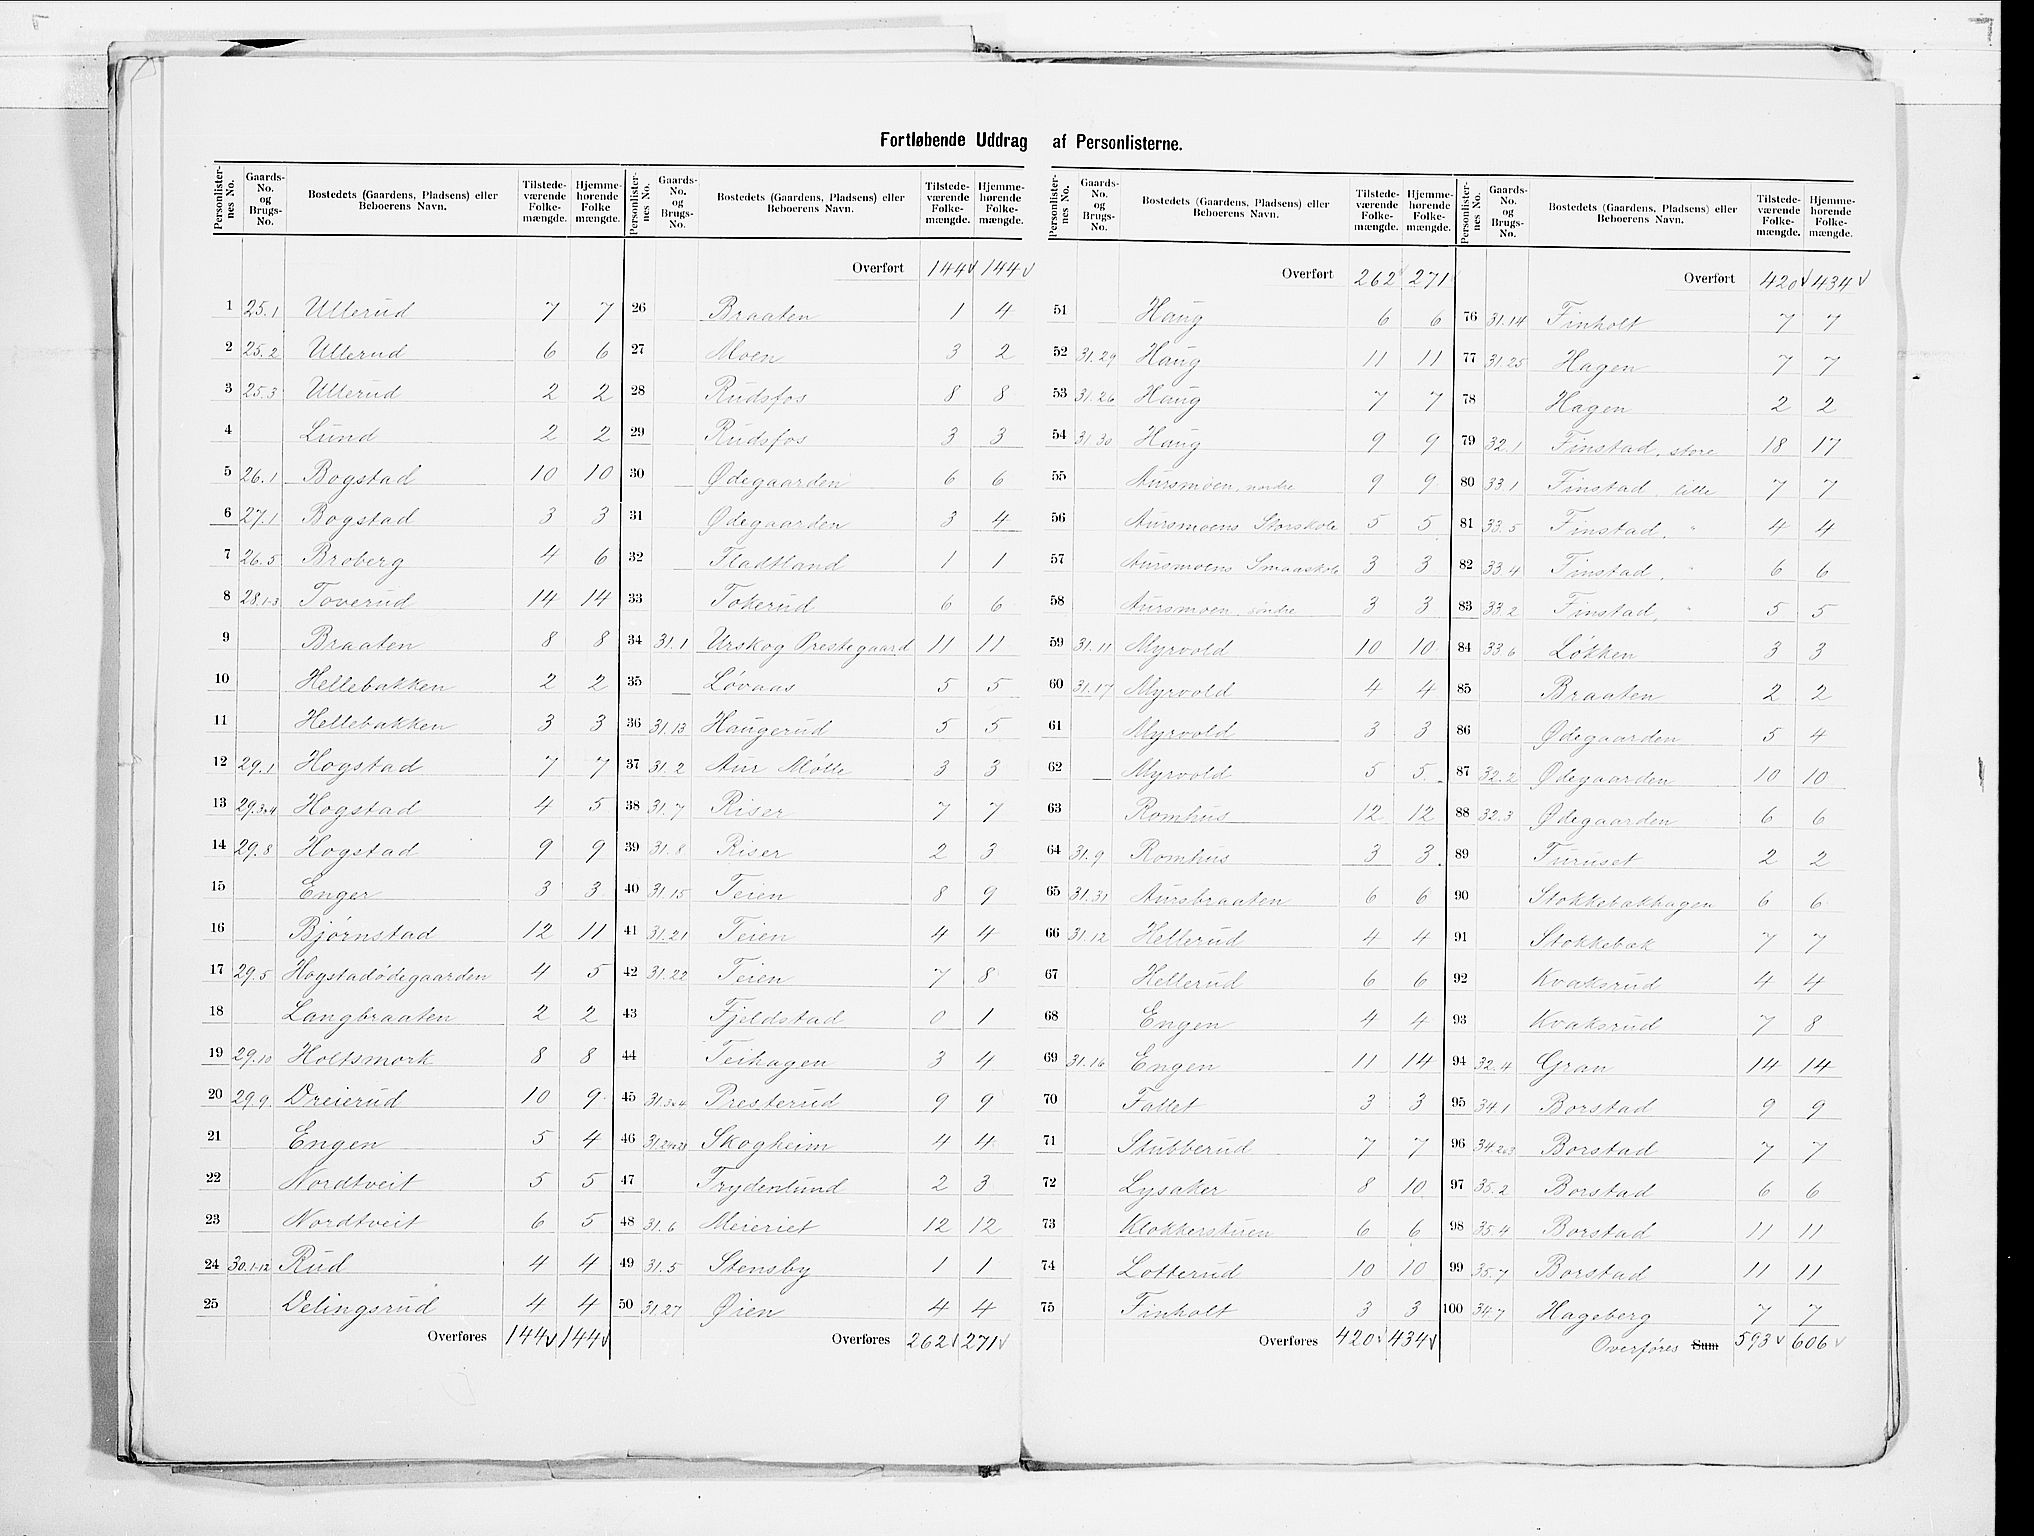 Fortløbende Uddrag af Personlisterne.
Personlister-nes No. Gaards-No. og Brugs-No. Bostedets (Gaardens, Pladsens) eller Beboerens Navn. Tilstede-værende Folke-mængde. Hjemme-hørende Folke mængde.
1 25.1 Ullerud 7 7
2 25.2 Ullerud 6 6
3 25.3 Ullerud 2 2
4 Lund 2 2
5 26.1 Bogstad 10 10
6 27.1 Bogstad 3 3
7 26.5 Broberg 4 6
8 28.1-3 Toverud 14 14
9 Braaten 8 8
10 Hellebakken 2 2
11 Hellebakken 3 3
12 29.1 Hogstad 7 7
13 29.3&4 Hogstad 4 5
14 29.8 Hogstad 9 9
15 Enger 3 3
16 Bjørnstad 12 11
17 29.5 Hogstadødegaarden 4 5
18 Langbraaten 2 2
19 29.10 Holtsmork 8 8
20 29.9 Dreierud 10 9
21 Engen 5 4
22 Nordtveit 5 5
23 Nordtveit 6 5
24 30.1-12 Rud 4 4
25 Delingsrud 4 4
Overføres 144 144
Personlister-nes No. Gaards-No. og Brugs-No. Bostedets (Gaardens, Pladsens) eller Beboerens Navn. Tilstede-værende Folke-mængde. Hjemme-hørende Folke-mængde.
Overført 144 144
26 Braaten 1 4
27 Moen 3 2
28 Rudsfos 8 8
29 Rudsfos 3 3
30 Ødegaarden 6 6
31 Ødegaarden 3 4
32 Fladtland 1 1
33 Tokerud 6 6
34 31.1 Urskog Prestegaard 11 11
35 Løvaas 5 5
36 31.13 Haugerud 5 5
37 31.2 Aur Mølle 3 3
38 31.7 Riser 7 7
39 31.8 Riser 2 3
40 31.15 Teien 8 9
41 31.21 Teien 4 4
42 31.22 Teien 7 8
43 Fjeldstad 0 1
44 Teihagen 3 4
45 31.3&4 Presterud 9 9
46 Skogheim 4 4
47 Frydenlund 2 3
48 31.6 Meieriet 12 12
49 31.5 Stensby 1 1
50 31.27 Øien 4 4
Overføres 262 271
Personlister-nes No. Gaards-No. og Brugs-No. Bostedets (Gaardens, Pladsens) eller Beboerens Navn. Tilstede-værende Folke-mængde. Hjemme-hørende Folke-mængde.
Overført 262 271
51 Haug 6 6
52 31.29 Haug 11 11
53 31.26 Haug 7 7
54 31.30 Haug 9 9
55 Aursmoen, nordre 9 9
56 Aursmoens Storskole 5 5
57 Aursmoens Smaaskole 3 3
58 Aursmoen, søndre 3 3
59 31.11 Myrvold 10 10
60 31.17 Myrvold 4 4
61 Myrvold 3 3
62 Myrvold 5 5
63 Romhus 12 12
64 31.9 Romhus 3 3
65 31.31 Aursbraaten 6 6
66 31.12 Hellerud 4 4
67 Hellerud 6 6
68 Engen 4 4
69 31.16 Engen 11 14
70 Fallet 3 3
71 Stubberud 7 7
72 Lysaker 8 10
73 Klokkerstuen 6 6
74 Lotterud 10 10
75 Finholt 3 3
Overføres 420 434
Personlister-nes No. Gaards-No. og Brugs-No. Bostedets (Gaardens, Pladsens) eller Beboerens Navn. Tilstede-værende Folke-mængde. Hjemme-hørende Folke-mængde.
Overført 420 434
76 31.14 Finholt 7 7
77 31.25 Hagen 7 7
78 Hagen 2 2
79 32.1 Finstad, store 18 17
80 33.1 Finstad, lille 7 7
81 33.5 Finstad, " 4 4
82 33.4 Finstad, " 6 6
83 33.2 Finstad, " 5 5
84 33.6 Løkken 3 3
85 Braaten 2 2
86 Ødegaarden 5 4
87 32.2 Ødegaarden 10 10
88 32.3 Ødegaarden 6 6
89 Turuset 2 2
90 Stokkebakhagen 6 6
91 Stokkebak 7 7
92 Kvaksrud 4 4
93 Kvaksrud 7 8
94 32.4 Gran 14 14
95 34.1 Borstad 9 9
96 34.2&3 Borstad 7 7
97 35.2 Borstad 6 6
98 35.4 Borstad 11 11
99 35.7 Borstad 11 11
100 34.7 Hageberg 7 7
Overføres Sum 593 606